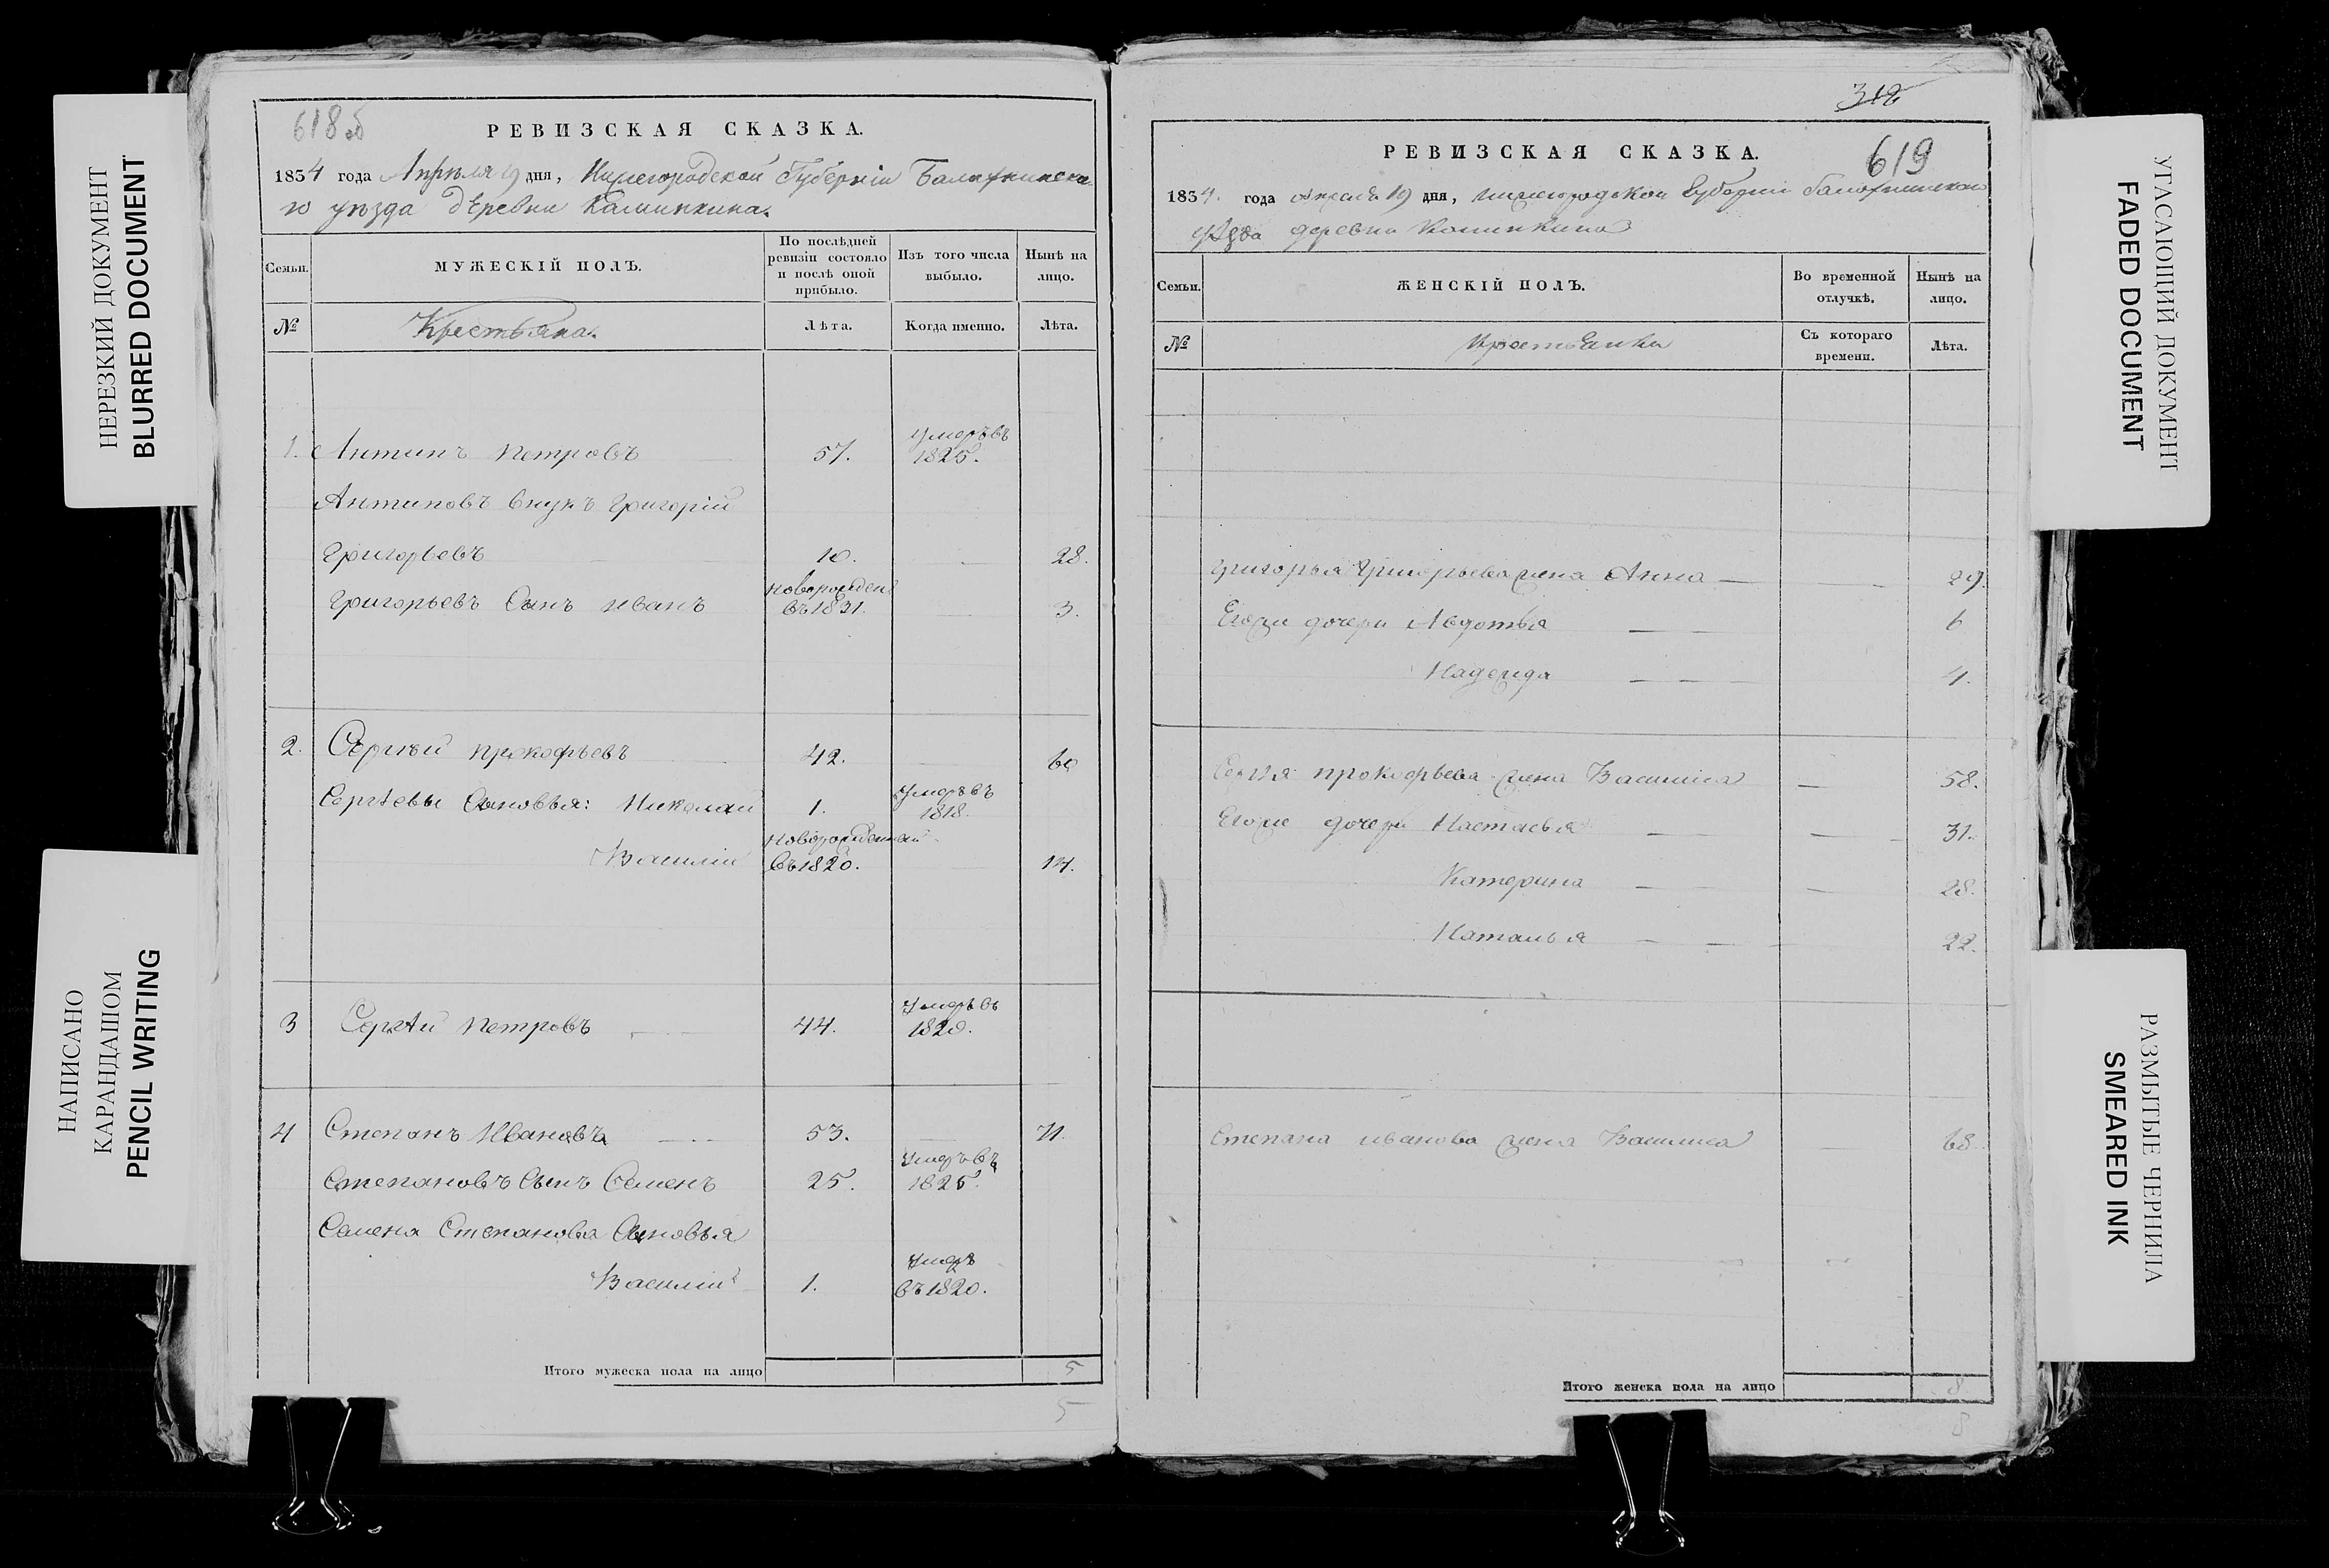 НЕРЕЗКИЙ ДОКУМЕНТ
BLURRED DOCUMENT
НАПИСАНО
КАРАНДАШОМ
PENCIL WRITING
618об
РЕВИЗСКАЯ СКАЗКА.
1834 года Апреля 19 дня, Нижегородской Губерніи Балахнинска
го уѣзда деревни Калинкина.
Семьи. МУЖЕСКІЙ ПОЛЪ. По послѣдней ревизіи состояло и послѣ оной прибыло. Изъ того числа выбыло. Нынѣ на лицо.
№ Крестьяна. Лѣта. Когда именно. Лѣта.
1. Антипъ Петровъ 57. умеръ въ 1825.
Антиповъ внукъ Григорій
Григорьевъ 10. 28.
Григорьевъ Сынъ Иванъ новорожден въ 1831. 3.
2. Сергѣй Прокофьевъ 42. 60
Сергѣевы Сыновья: Николай 1. умеръ въ 1818.
Василій новорожденный въ 1820. 14.
3 Сергѣй Петровъ 44. умеръ въ 1820.
4 Степанъ Ивановъ 53. 71
Степановъ Сынъ Семенъ 25. умеръ въ 1825.
Семена Степанова Сыновья
Василій 1. умеръ въ 1820.
Итого мужеска пола на лицо 5
5
312
619
РЕВИЗСКАЯ СКАЗКА.
1834. года Апреля 19 дня, Нижегородской Губерніи Балахнинского
уѣзда деревни Калинкина
Семьи. ЖЕНСКІЙ ПОЛЪ. Во временной отлучкѣ. Нынѣ на лицо.
№ Крестьянки Съ котораго времени. Лѣта.
Григорья Григорьева жена Анна 29
Егоже дочери Авдотья 6
Надежда 4.
Сергѣя Прокофьева жена Василиса 58.
Егоже дочери Настасья 31.
Катерина 28.
Наталья 22.
Степана Иванова жена Василиса 68.
Итого женска пола на лицо 8
8
УГАСАЮЩИЙ ДОКУМЕНТ
FADED DOCUMENT
РАЗМЫТЫЕ ЧЕРНИЛА
SMEARED INK